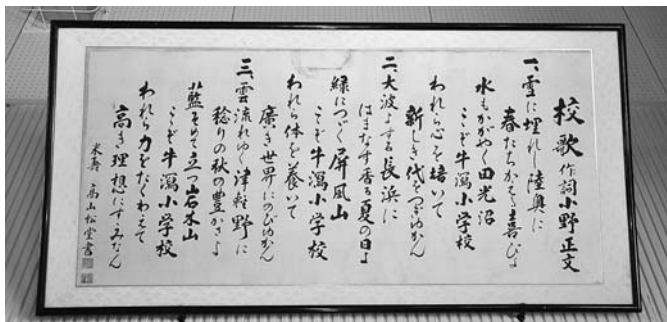 校歌 作詞 小野正文
一、雪に埋れし陸奥に
春たちかえる喜びよ
水もかがやく田光沼
こゝぞ牛潟小学校
われら心を培いて
新しき代をつくりゆかん
二、大波よする長浜に
はまなす香る夏の日よ
緑につゞく屏風山
こゝぞ牛潟小学校
われら体を養いて
廣き世界にのびゆかん
三、雲流れゆく津軽野に
稔りの秋の豊かさよ
藍そめて立つ岩木山
こゝぞ牛潟小学校
われら力をたくわえて
高き理想にすゝみなん
米寿 高山松堂書